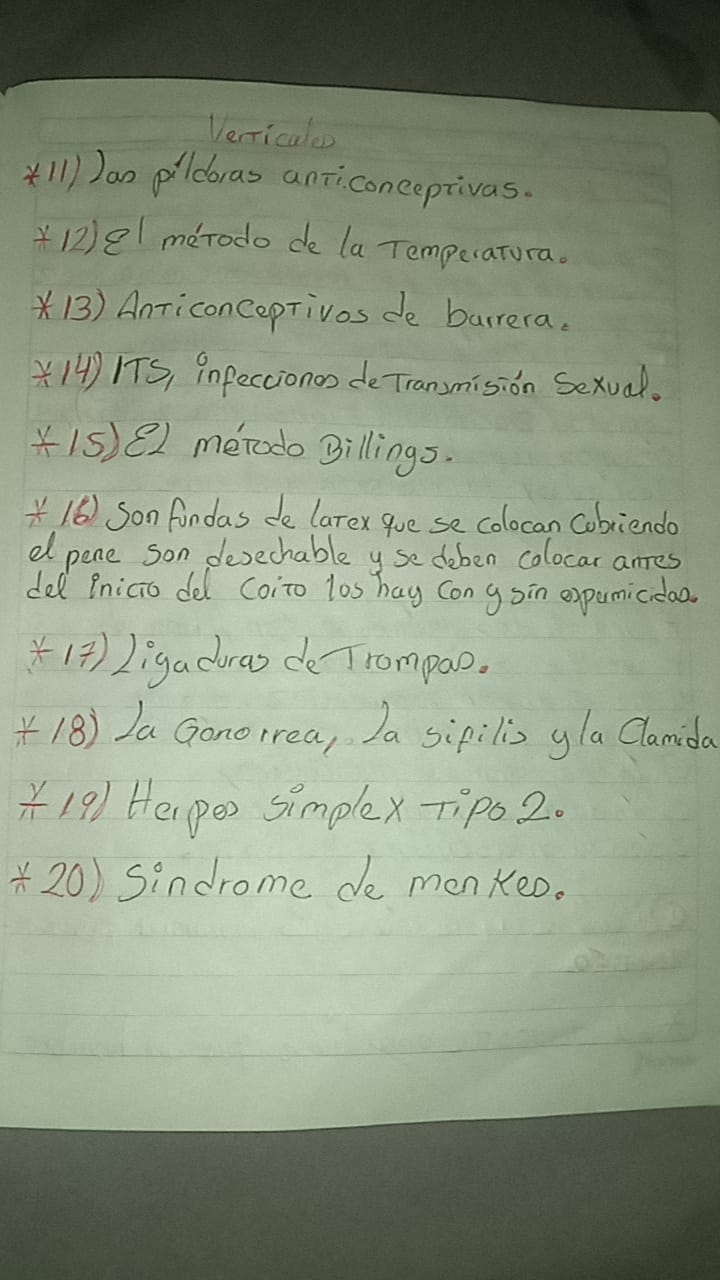 Verticales
*11) Las píldoras anticonceptivas.
*12) El método de la Temperatura.
*13) Anticonceptivos de barrera.
*14) ITS, infecciones de Transmisión Sexual.
*15) El método Billings.
*16) Son fundas de latex que se colocan Cubriendo
el pene son desechable y se deben colocar antes
del inicio del Coito los hay Con y sin espumicidas.
*17) Ligaduras de Trompas.
*18) La Gonorrea, La sifilis y la Clamida
*19) Herpes simplex Tipo 2.
*20) Sindrome de menkes.